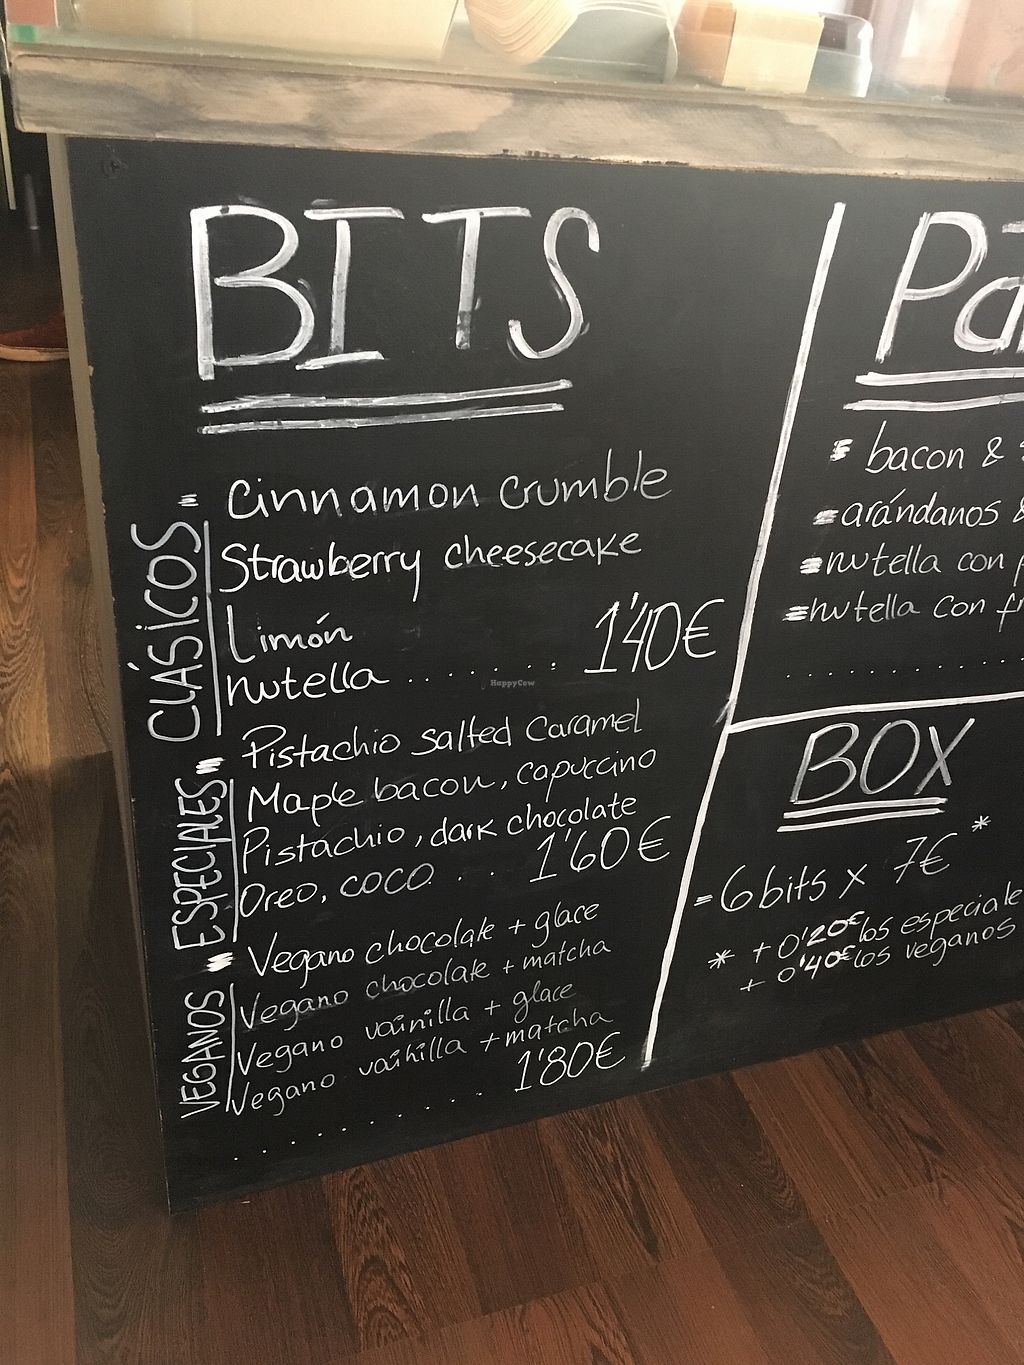 BITS
CLÁSICOS
= Cinnamon crumble
Strawberry cheesecake
Limón
Nutella ....... 1'40€
ESPECIALES
= Pistachio salted caramel
Maple bacon, capuccino
Pistachio, dark chocolate
Oreo, coco... 1'60€
VEGANOS
= Vegano chocolate + glace
Vegano chocolate + matcha
Vegano vainilla + glace
Vegano vainilla + matcha
.......... 1'80€
= bacon &
= arándanos &
= nutella con
= nutella con
BOX
= 6 bits x 7€ *
* + 0'20€ los especiale
+ 0'40€ los veganos
HappyCow